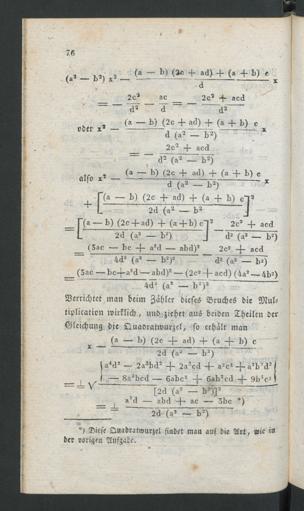 76
(a² — b²) x² — (a — b) (2c + ad) + (a + b) c / d x
= — 2c² / d² — ac / d = — 2c² + acd / d²
oder x² — (a — b) (2c + ad) + (a + b) c / d (a² — b²) x
= — 2c² + acd / d² (a² — b²)
also x² — (a — b) (2c + ad) + (a + b) c / d (a² — b²) x
+ [(a — b) (2c + ad) + (a + b) c / 2d (a² — b²)]²
= [(a — b) (2c + ad) + (a + b) c / 2d (a² — b²)]² — 2c² + acd / d² (a² — b²)
= (3ac — bc + a²d — abd)² / 4d² (a² — b²)² — 2c² + acd / d² (a² — b²)
= (3ac — bc + a²d — abd)² — (2c² + acd) (4a² — 4b²) / 4d² (a² — b²)²
Verrichtet man beim Zähler dieses Bruches die Mul-
tiplication wirklich, und ziehet aus beiden Theilen der
Gleichung die Quadratwurzel, so erhält man
x — (a — b) (2c + ad) + (a + b) c / 2d (a² — b²)
= ± √ {a⁴d² — 2a³bd² + 2a³cd + a²c² + a²b²d² — 8a²bcd — 6abc² + 6ab²cd + 9b²c²} / [2d (a² — b²)]²
= ± a²d — abd + ac — 3bc *) / 2d (a² — b²)
*) Diese Quadratwurzel findet man auf die Art, wie in
der vorigen Aufgabe.